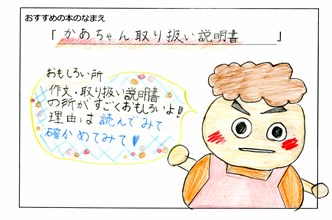 おすすめの本のなまえ
「かあちゃん取り扱い説明書」
おもしろい所
作文・取り扱い説明書
の所がすごくおもしろいよ!!
理由は読んでみて
確かめてみて♥